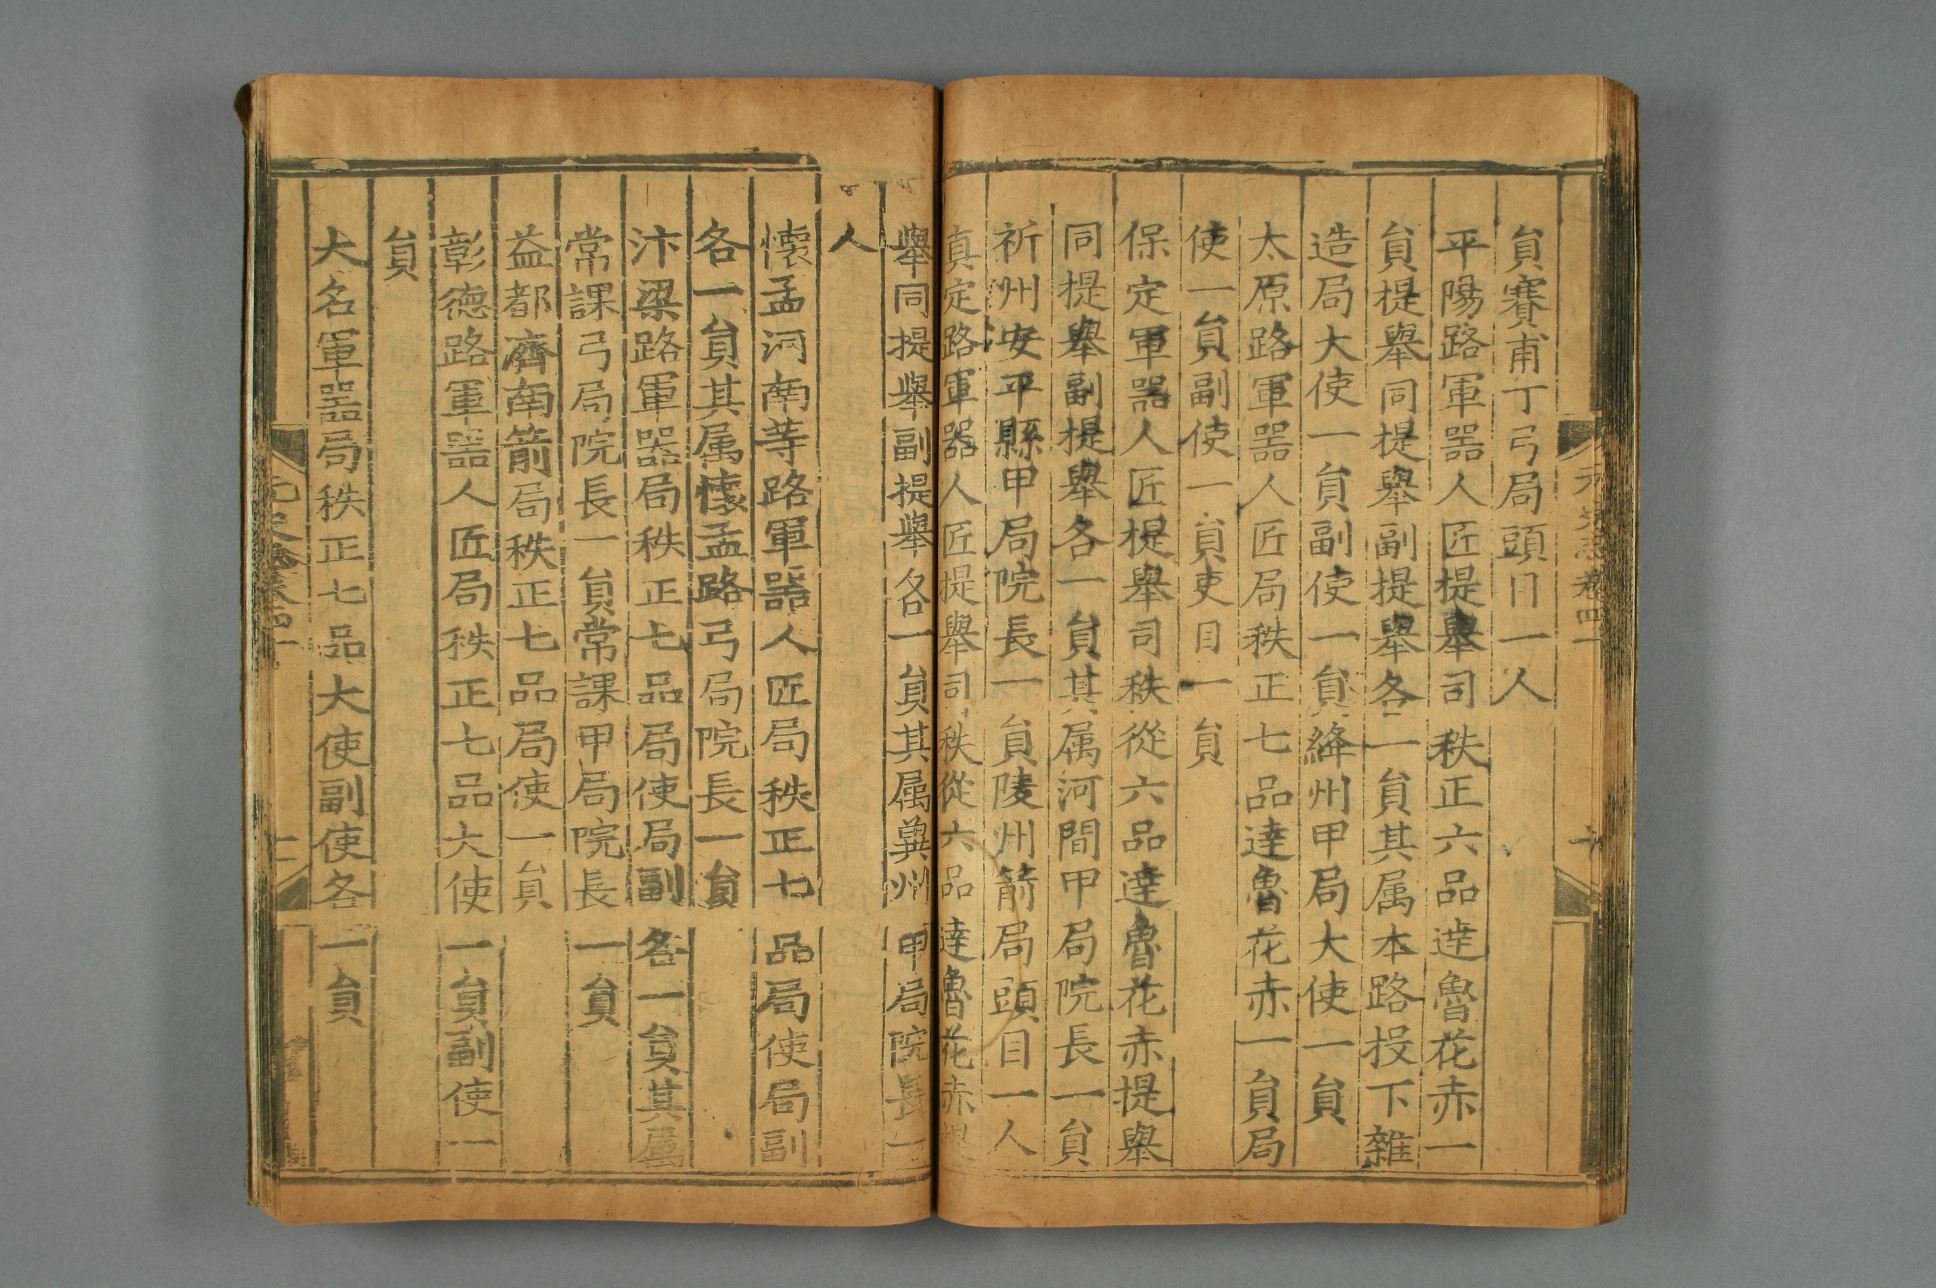 元史志卷四十
十
貟賽甫丁弓局頭目一人
平陽路軍器人匠提舉司秩正六品達魯花赤一
貟提舉同提舉副提舉各一貟其属本路投下雜
造局大使一貟副使一貟絳州甲局大使一貟
太原路軍器人匠局秩正七品達魯花赤一貟局
使一貟副使一貟吏目一貟
保定軍器人匠提舉司秩從六品達魯花赤提舉
同提舉副提舉各一貟其属河間甲局院長一貟
祈州安平縣甲局院長一貟陵州箭局頭目一人
真定路軍器人匠提舉司秩從六品達魯花赤提
舉同提舉副提舉各一貟其属兾州甲局院長一
人
懷孟河南等路軍器人匠局秩正七品局使局副
各一貟其属懷孟路弓局院長一貟
汴梁路軍器局秩正七品局使局副各一貟其属
常課弓局院長一貟常課甲局院長一貟
益都濟南箭局秩正七品局使一貟
彰德路軍器人匠局秩正七品大使一貟副使一
貟
大名軍器局秩正七品大使副使各一貟